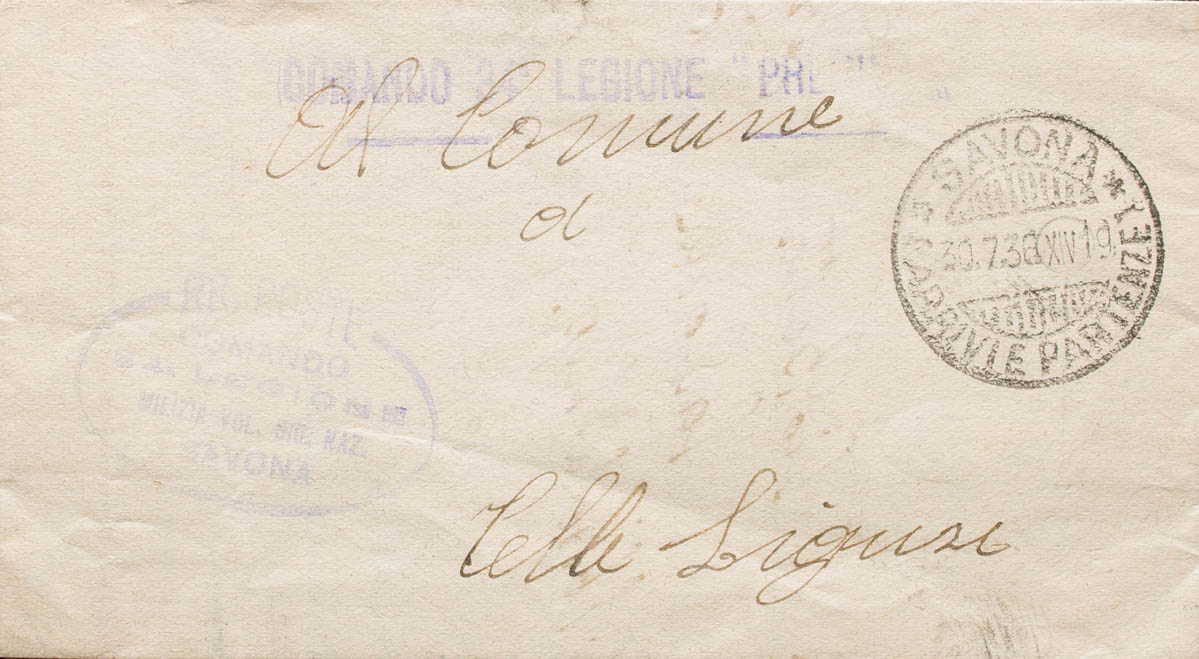 COMANDO 34ª LEGIONE "
Al Comune
di
Celle Ligure
RR. POSTE
COMANDO
34ª LEGIONE
MILIZIA VOL. SIC. NAZ.
SAVONA
* SAVONA *
30.7.36 XIV-19
ARRIVI E PARTENZE